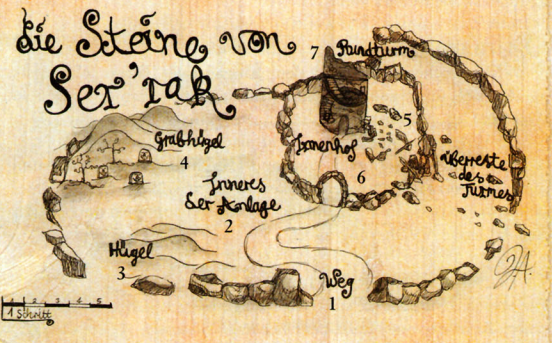 die Steine von
Ser'rak
7 Rundturm
5
Innenhof
Grabhügel
4
6
Überreste
des
Turmes
Inneres
der Anlage
2
Hügel
3
Weg
1
1 2 3 4 5
1 Schritt